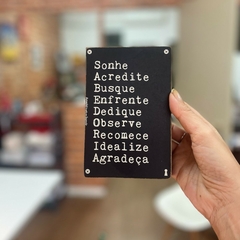 Sonhe
Acredite
Busque
Enfrente
Dedique
Observe
Recomece
Idealize
Agradeça